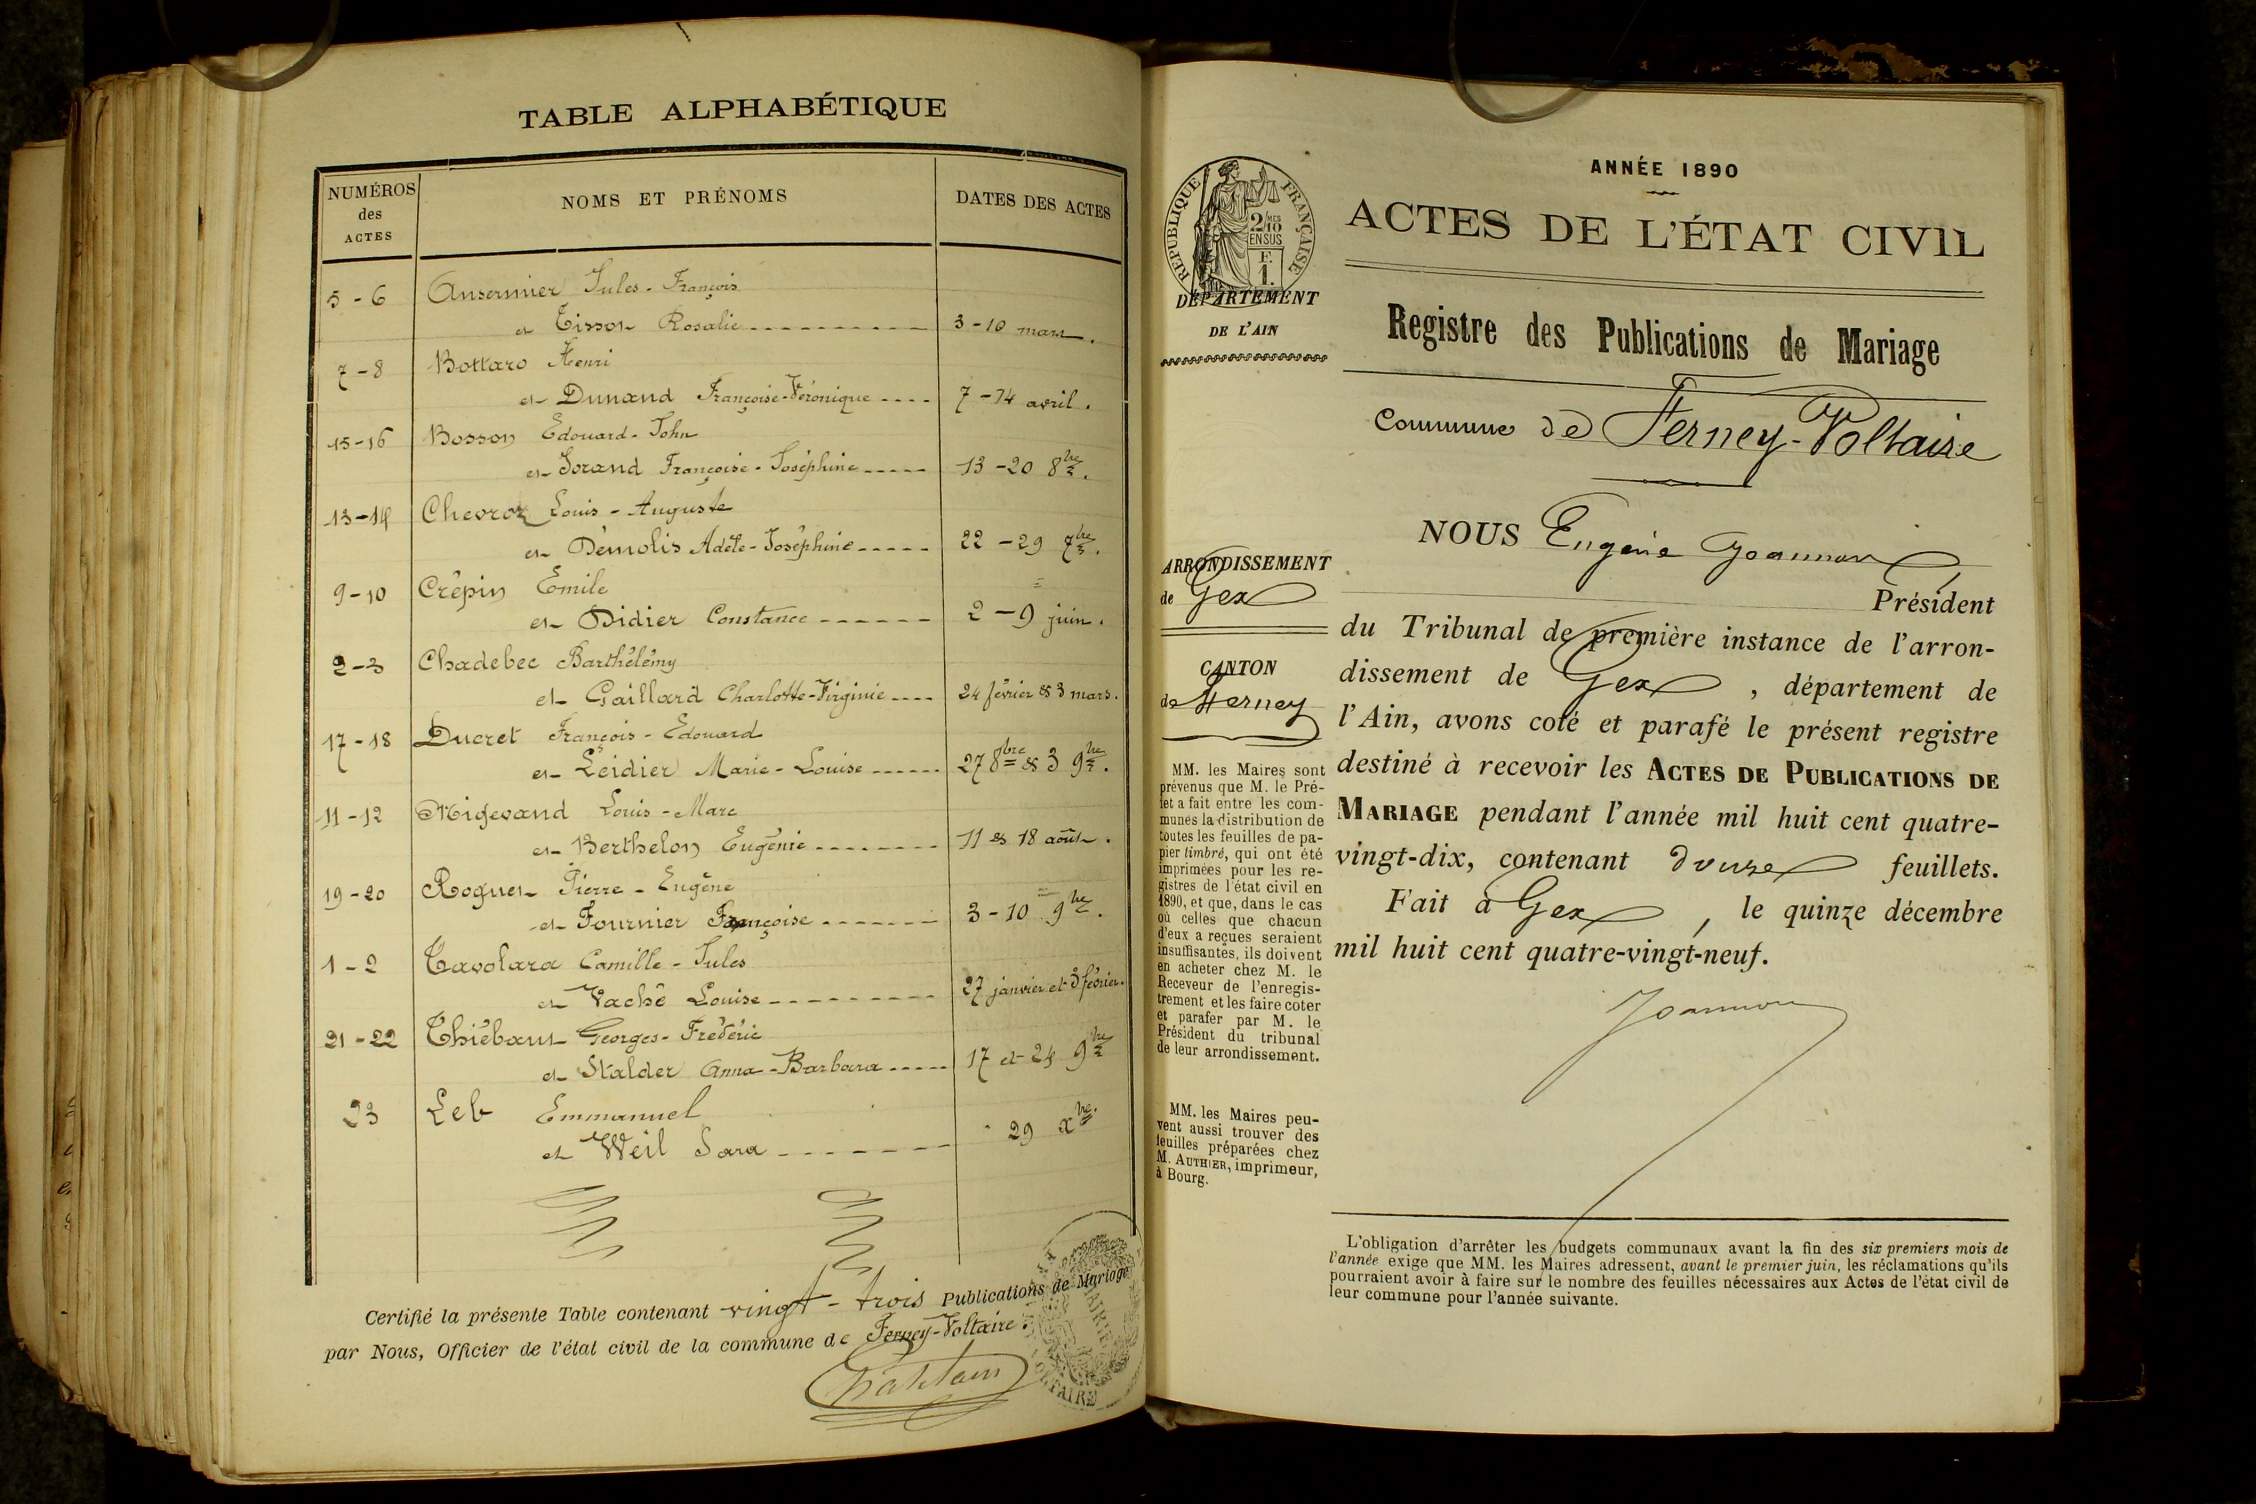 TABLE ALPHABÉTIQUE
NUMÉROS des ACTES
NOMS ET PRÉNOMS
DATES DES ACTES
5-6 Ansermier Jules-François
et Tisson Rosalie 3-10 mars.
7-8 Bottaro Henri
et Dunand Françoise-Véronique 7-14 avril.
15-16 Bosson Edouard-John
et Jorand Françoise-Joséphine 13-20 8bre.
13-14 Chevroz Louis-Auguste
et Démolis Adèle-Joséphine 22-29 7bre.
9-10 Crépin Emile
et Didier Constance 2-9 juin.
2-3 Chadebec Barthélémy
et Gaillard Charlotte-Virginie 24 février & 3 mars.
17-18 Ducret François-Edouard
et Leidier Marie-Louise 27 8bre & 3 9bre.
11-12 Migevand Louis-Marc
et Berthelon Eugénie 11 & 18 août.
19-20 Roguet Pierre-Eugène
et Fournier Françoise 3-10 9bre.
1-2 Tavolara Camille-Jules
et Vaché Louise 27 janvier et 3 février.
21-22 Thiébaut Georges-Frédéric
et Stalder Anna-Barbara 17 et 24 9bre
23 Leb Emmanuel
et Weil Sara 29 xbre.
Certifié la présente Table contenant vingt-trois Publications de Mariage
par Nous, Officier de l'état civil de la commune de Ferney-Voltaire.
MAIRIE
VOLTAIRE
ANNÉE 1890
RÉPUBLIQUE FRANÇAISE
2/10 MES
EN SUS
F.
1.
ACTES DE L'ÉTAT CIVIL
DÉPARTEMENT
DE L'AIN
Registre des Publications de Mariage
Commune de Ferney-Voltaire
ARRONDISSEMENT
de Gex
CANTON
de Ferney
MM. les Maires sont
prévenus que M. le Pré-
fet a fait entre les com-
munes la distribution de
toutes les feuilles de pa-
pier timbré, qui ont été
imprimées pour les re-
gistres de l'état civil en
1890, et que, dans le cas
où celles que chacun
d'eux a reçues seraient
insuffisantes, ils doivent
en acheter chez M. le
Receveur de l'enregis-
trement et les faire coter
et parafer par M. le
Président du tribunal
de leur arrondissement.
MM. les Maires peu-
vent aussi trouver des
feuilles préparées chez
M. AUTHIER, imprimeur,
à Bourg.
NOUS Eugène Joannon
Président
du Tribunal de première instance de l'arron-
dissement de Gex, département de
l'Ain, avons coté et parafé le présent registre
destiné à recevoir les ACTES DE PUBLICATIONS DE
MARIAGE pendant l'année mil huit cent quatre-
vingt-dix, contenant douze feuillets.
Fait à Gex, le quinze décembre
mil huit cent quatre-vingt-neuf.
Joannon
L'obligation d'arrêter les budgets communaux avant la fin des six premiers mois de
l'année exige que MM. les Maires adressent, avant le premier juin, les réclamations qu'ils
pourraient avoir à faire sur le nombre des feuilles nécessaires aux Actes de l'état civil de
leur commune pour l'année suivante.